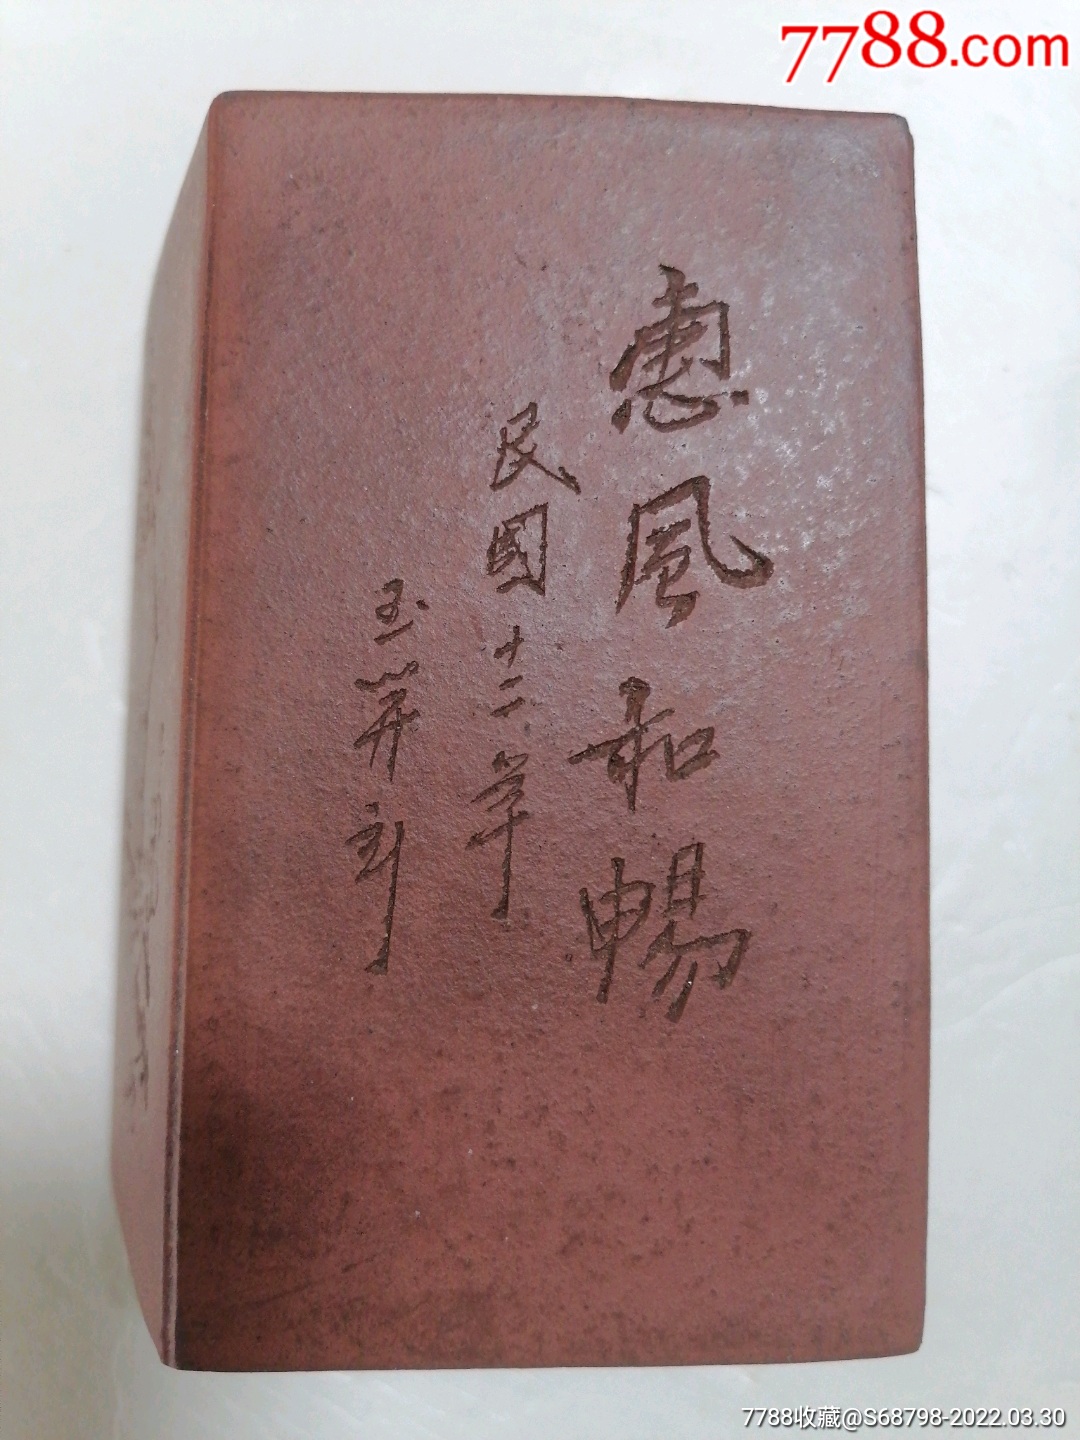 7788.com
惠風和暢
民國十二年
玉 刻
7788收藏@S68798-2022.03.30